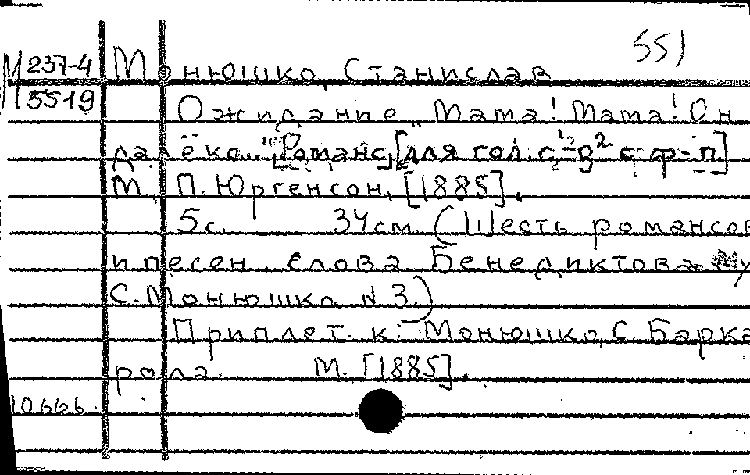 551
М 237-4 Монюшко, Станислав
П 5519
Ожидание „Мама! Мама! Он
далёко..." [Романс] [для гол. c¹-g² с ф-п]
М., П. Юргенсон, [1885].
5 с. 34 см. (Шесть романсов
и песен. Слова Бенедиктова
С. Монюшко N 3.)
Приплет. к: Монюшко, С. Барка
рола. М. [1885].
10666.